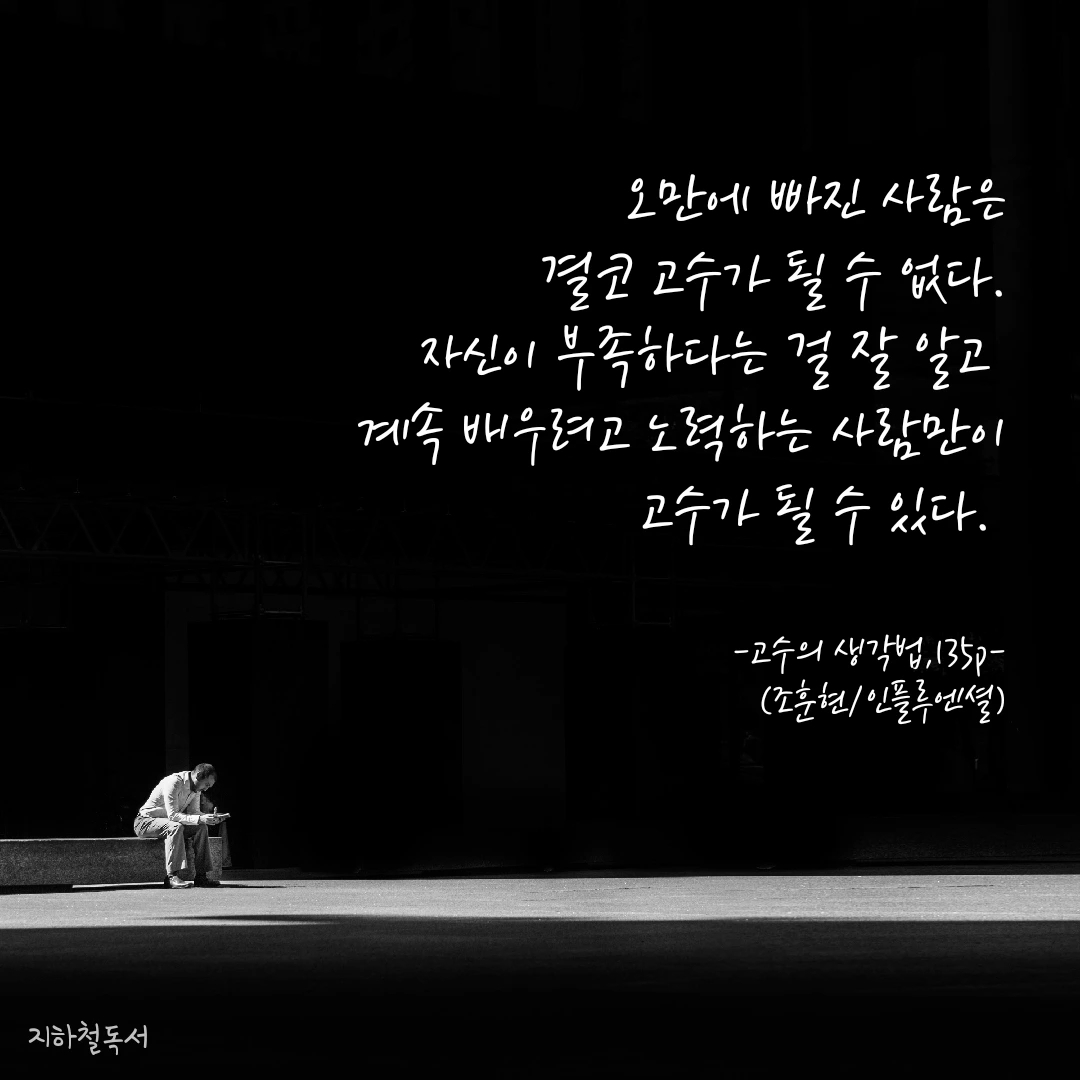 오만에 빠진 사람은
결코 고수가 될 수 없다.
자신이 부족하다는 걸 잘 알고
계속 배우려고 노력하는 사람만이
고수가 될 수 있다.
-고수의 생각법,135p-
(조훈현/인플루엔셜)
지하철독서